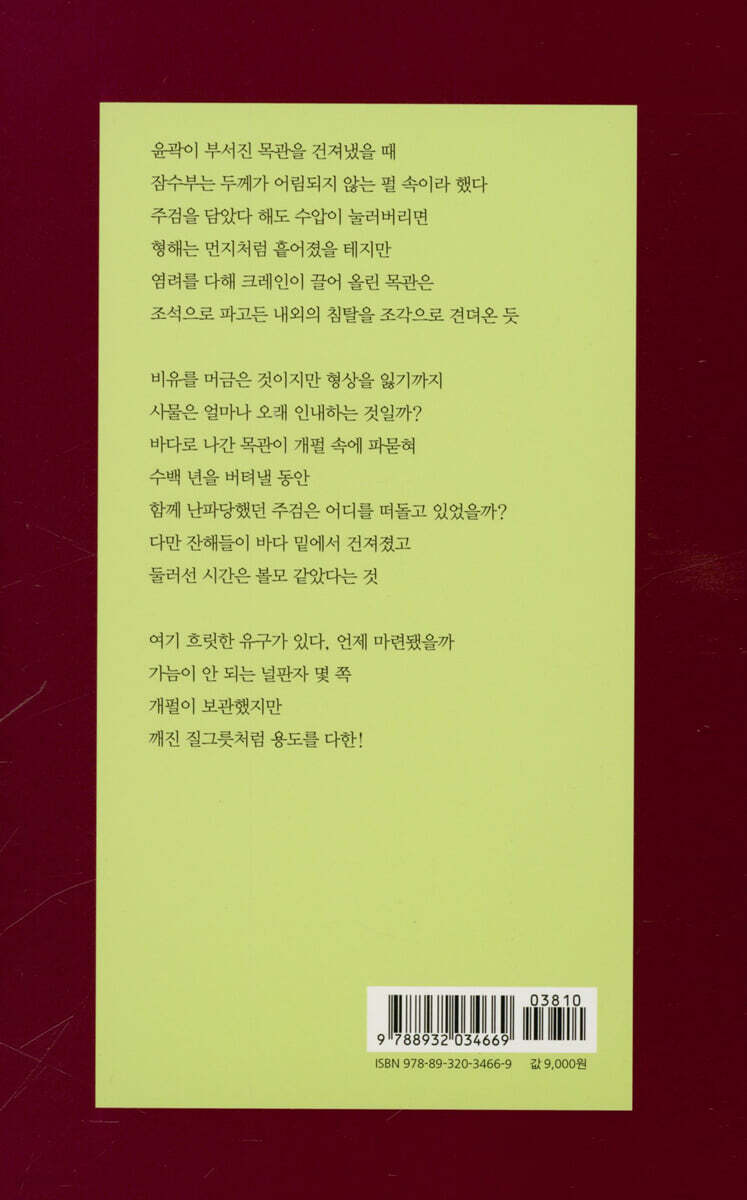 윤곽이 부서진 목관을 건져냈을 때
잠수부는 두께가 어림되지 않는 펄 속이라 했다
주검을 담았다 해도 수압이 눌러버리면
형해는 먼지처럼 흩어졌을 테지만
염려를 다해 크레인이 끌어 올린 목관은
조석으로 파고든 내외의 침탈을 조각으로 견뎌온 듯
비유를 머금은 것이지만 형상을 잃기까지
사물은 얼마나 오래 인내하는 것일까?
바다로 나간 목관이 개펄 속에 파묻혀
수백 년을 버텨낼 동안
함께 난파당했던 주검은 어디를 떠돌고 있었을까?
다만 잔해들이 바다 밑에서 건져졌고
둘러선 시간은 볼모 같았다는 것
여기 흐릿한 유구가 있다, 언제 마련됐을까
가늠이 안 되는 널판자 몇 쪽
개펄이 보관했지만
깨진 질그릇처럼 용도를 다한!
03810
9 788932 034669
ISBN 978-89-320-3466-9 값 9,000원